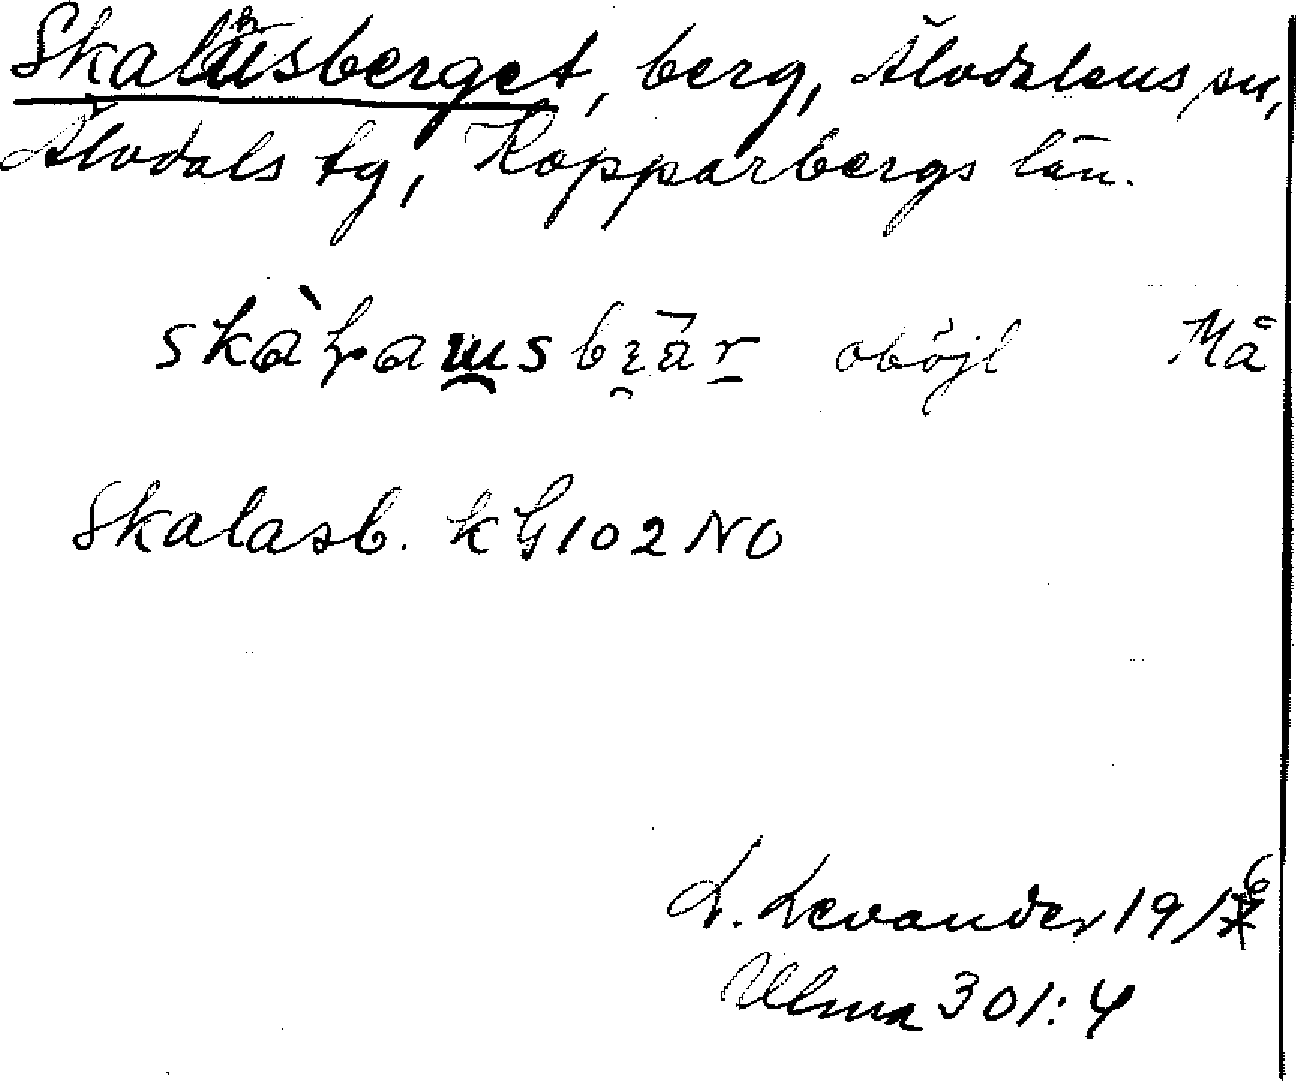 Skalåsberget, berg, Älvdalens sn,
Älvdals tg, Kopparbergs län.
oböjl Må
Skalasb. kG102NO
L. Levander 1916
Ulma 301:4